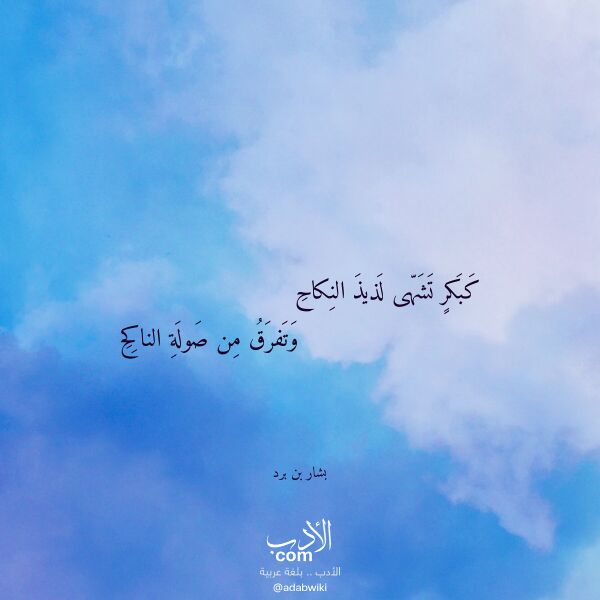 كَبَكرٍ تَشَهّى لَذيذَ النِكاحِ
وَتَفرَقُ مِن صَولَةِ الناكِحِ
بشار بن برد
الأدب
com
الأدب .. بلغة عربية
@adabwiki